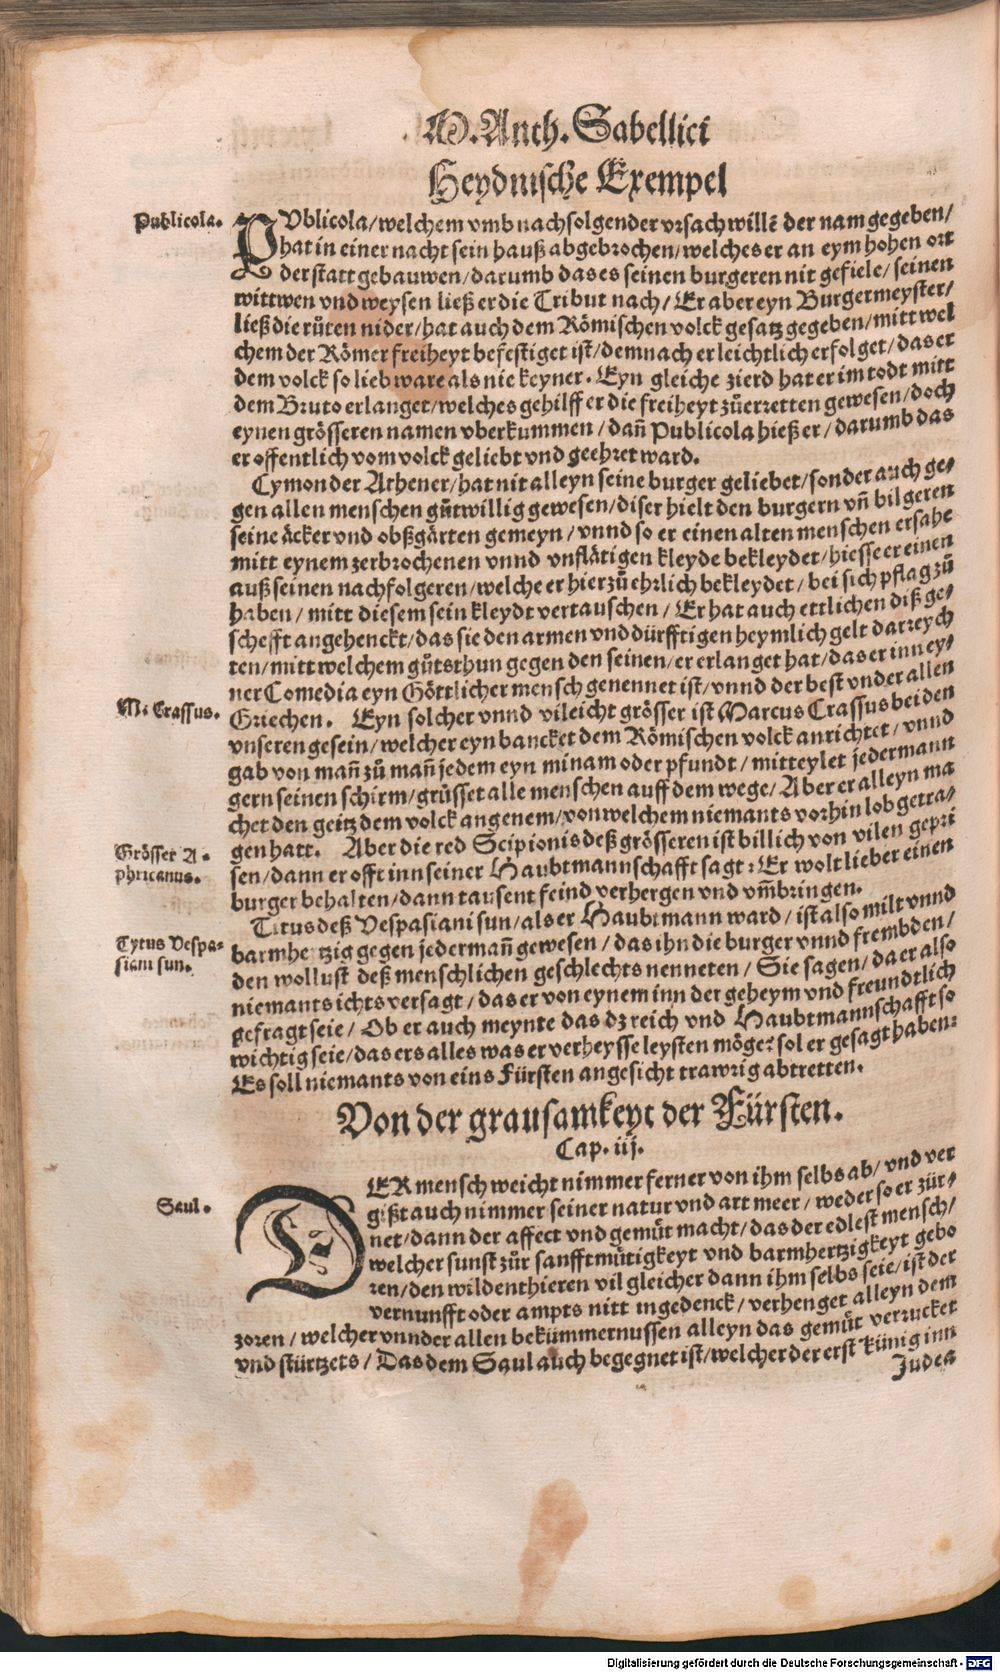 M. Anth. Sabellici
Heydnische Exempel
Publicola.
PVblicola/welchem vmb nachfolgender vrsach willẽ der nam gegeben/
hat in einer nacht sein hauß abgebrochen/welches er an eym hohen ort
der statt gebauwen/darumb das es seinen burgeren nit gefiele/seinen
wittwen vnd weysen ließ er die Tribut nach/Er aber eyn Burgermeyster/
ließ die růten nider/hat auch dem Römischen volck gesatz gegeben/mitt wel
chem der Römer freiheyt befestiget ist/demnach er leichtlich erfolget/das er
dem volck so lieb ware als nie keyner. Eyn gleiche zierd hat er im todt mitt
dem Bruto erlanget/welches gehilff er die freiheyt zůerretten gewesen/doch
eynen grösseren namen vberkummen/dañ Publicola hieß er/darumb das
er offentlich vom volck geliebt vnd geehret ward.
Cymon der Athener/hat nit alleyn seine burger geliebet/sonder auch ge/
gen allen menschen gůtwillig gewesen/diser hielt den burgern vñ bilgeren
seine äcker vnd obßgärten gemeyn/vnnd so er einen alten menschen ersahe
mitt eynem zerbrochenen vnnd vnflätigen kleyde bekleydet/hiesse er einen
auß seinen nachfolgeren/welche er hierzů ehrlich bekleydet/bei sich pflag zů
haben/mitt diesem sein kleydt vertauschen/Er hat auch ettlichen diß ge/
schefft angehenckt/das sie den armen vnd dürfftigen heymlich gelt darreych
ten/mitt welchem gůtsthun gegen den seinen/er erlanget hat/das er inn ey/
ner Comedia eyn Göttlicher mensch genennet ist/vnnd der best vnder allen
M. Crassus.
Griechen. Eyn solcher vnnd vileicht grösser ist Marcus Crassus bei den
vnseren gesein/welcher eyn bancket dem Römischen volck anrichtet/vnnd
gab von mañ zů mañ jedem eyn minam oder pfundt/mitteylet jedermann
gern seinen schirm/grüsset alle menschen auff dem wege/Aber er alleyn ma
chet den geitz dem volck angenem/von welchem niemants vorhin lob getra/
Grösser A-
phricanus.
gen hatt. Aber die red Scipionis deß grösseren ist billich von vilen gepri
sen/dann er offt inn seiner Haubtmannschafft sagt: Er wolt lieber einen
burger behalten/dann tausent feind verhergen vnd vm̃bringen.
Titus deß Vespasiani sun/als er Haubtmann ward/ist also milt vnnd
Tytus Vespa-
siani sun.
barmhertzig gegen jedermañ gewesen/das ihn die burger vnnd frembden/
den wollust deß menschlichen geschlechts nenneten/Sie sagen/da er also
niemants ichts versagt/das er von eynem inn der geheym vnd freundtlich
gefragt seie/Ob er auch meynte das dz reich vnd Haubtmannschafft so
wichtig seie/das ers alles was er verheysse leysten möge? sol er gesagt haben:
Es soll niemants von eins Fürsten angesicht trawrig abtretten.
Von der grausamkeyt der Fürsten.
Cap. iij.
Saul.
DER mensch weicht nimmer ferner von ihm selbs ab/vnd ver
gißt auch nimmer seiner natur vnd art meer/weder so er zür/
net/dann der affect vnd gemüt macht/das der edlest mensch/
welcher sunst zůr sanfftmütigkeyt vnd barmhertzigkeyt gebo
ren/den wilden thieren vil gleicher dann ihm selbs seie/ist der
vernunfft oder ampts nitt ingedenck/verhenget alleyn dem
zoren/welcher vnnder allen bekümmernussen alleyn das gemüt verrucket
vnd stürtzets/Das dem Saul auch begegnet ist/welcher der erst künig inn
Judea
Digitalisierung gefördert durch die Deutsche Forschungsgemeinschaft - DFG